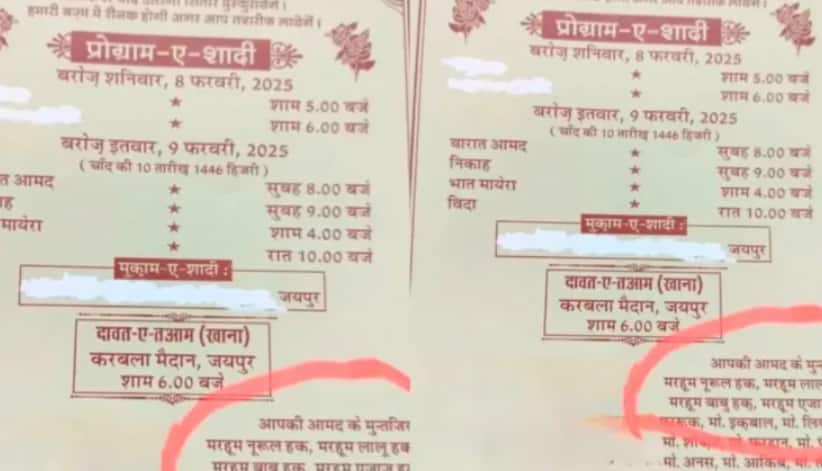 हमारी बज़्म में रौनक होगी अगर आप तशरीफ लावेंगे।
प्रोग्राम-ए-शादी
बरोज़ शनिवार, 8 फरवरी, 2025
★ शाम 5.00 बजे
★ शाम 6.00 बजे
बरोज़ इतवार, 9 फरवरी, 2025
( चाँद की 10 तारीख़ 1446 हिजरी )
त आमद ★ सुबह 8.00 बजे
ाह ★ सुबह 9.00 बजे
मायेरा ★ शाम 4.00 बजे
★ रात 10.00 बजे
मुक़ाम-ए-शादी :
जयपुर
दावत-ए-तआम (खाना)
करबला मैदान, जयपुर
शाम 6.00 बजे
आपकी आमद के मुन्तजिर
मरहूम नूरूल हक, मरहूम लालू हक
मरहूम बाबु हक, मरहूम एजाज़
प्रोग्राम-ए-शादी
बरोज़ शनिवार, 8 फरवरी, 2025
★ शाम 5.00 बजे
★ शाम 6.00 बजे
बरोज़ इतवार, 9 फरवरी, 2025
( चाँद की 10 तारीख़ 1446 हिजरी )
बारात आमद ★ सुबह 8.00 बजे
निकाह ★ सुबह 9.00 बजे
भात मायेरा ★ शाम 4.00 बजे
विदा ★ रात 10.00 बजे
मुक़ाम-ए-शादी :
जयपुर
दावत-ए-तआम (खाना)
करबला मैदान, जयपुर
शाम 6.00 बजे
आपकी आमद के मुन
मरहूम नूरूल हक, मरहूम लाल
मरहूम बाबु हक, मरहूम एजा
मो. इक़बाल, मो. लि
मो. फरहान, मो.
मो. अनस, मो. आकिब, मो.